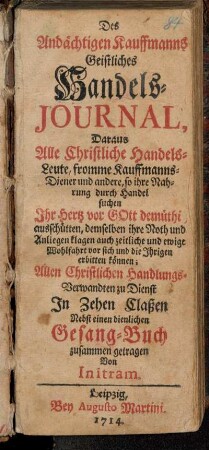 Des
Andächtigen Kauffmanns
Geistliches
Handels-
JOURNAL,
Daraus
Alle Christliche Handels-
Leute, fromme Kauffmanns-
Diener und andere, so ihre Nah-
rung durch Handel
suchen
Ihr Hertz vor GOtt demüthi
ausschütten, demselben ihre Noth und
Anliegen klagen auch zeitliche und ewige
Wohlfahrt vor sich und die Ihrigen
erbitten können;
Allen Christlichen Handlungs-
Verwandten zu Dienst
In Zehen Claßen
Nebst einen dienlichen
Gesang-Buch
zusammen getragen
Von
Initram.
Leipzig,
Bey Augusto Martini.
1714.